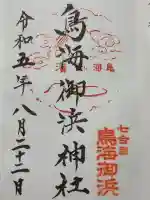 鳥海御浜神社
令和五年八月二十一日
七合目
鳥海御浜